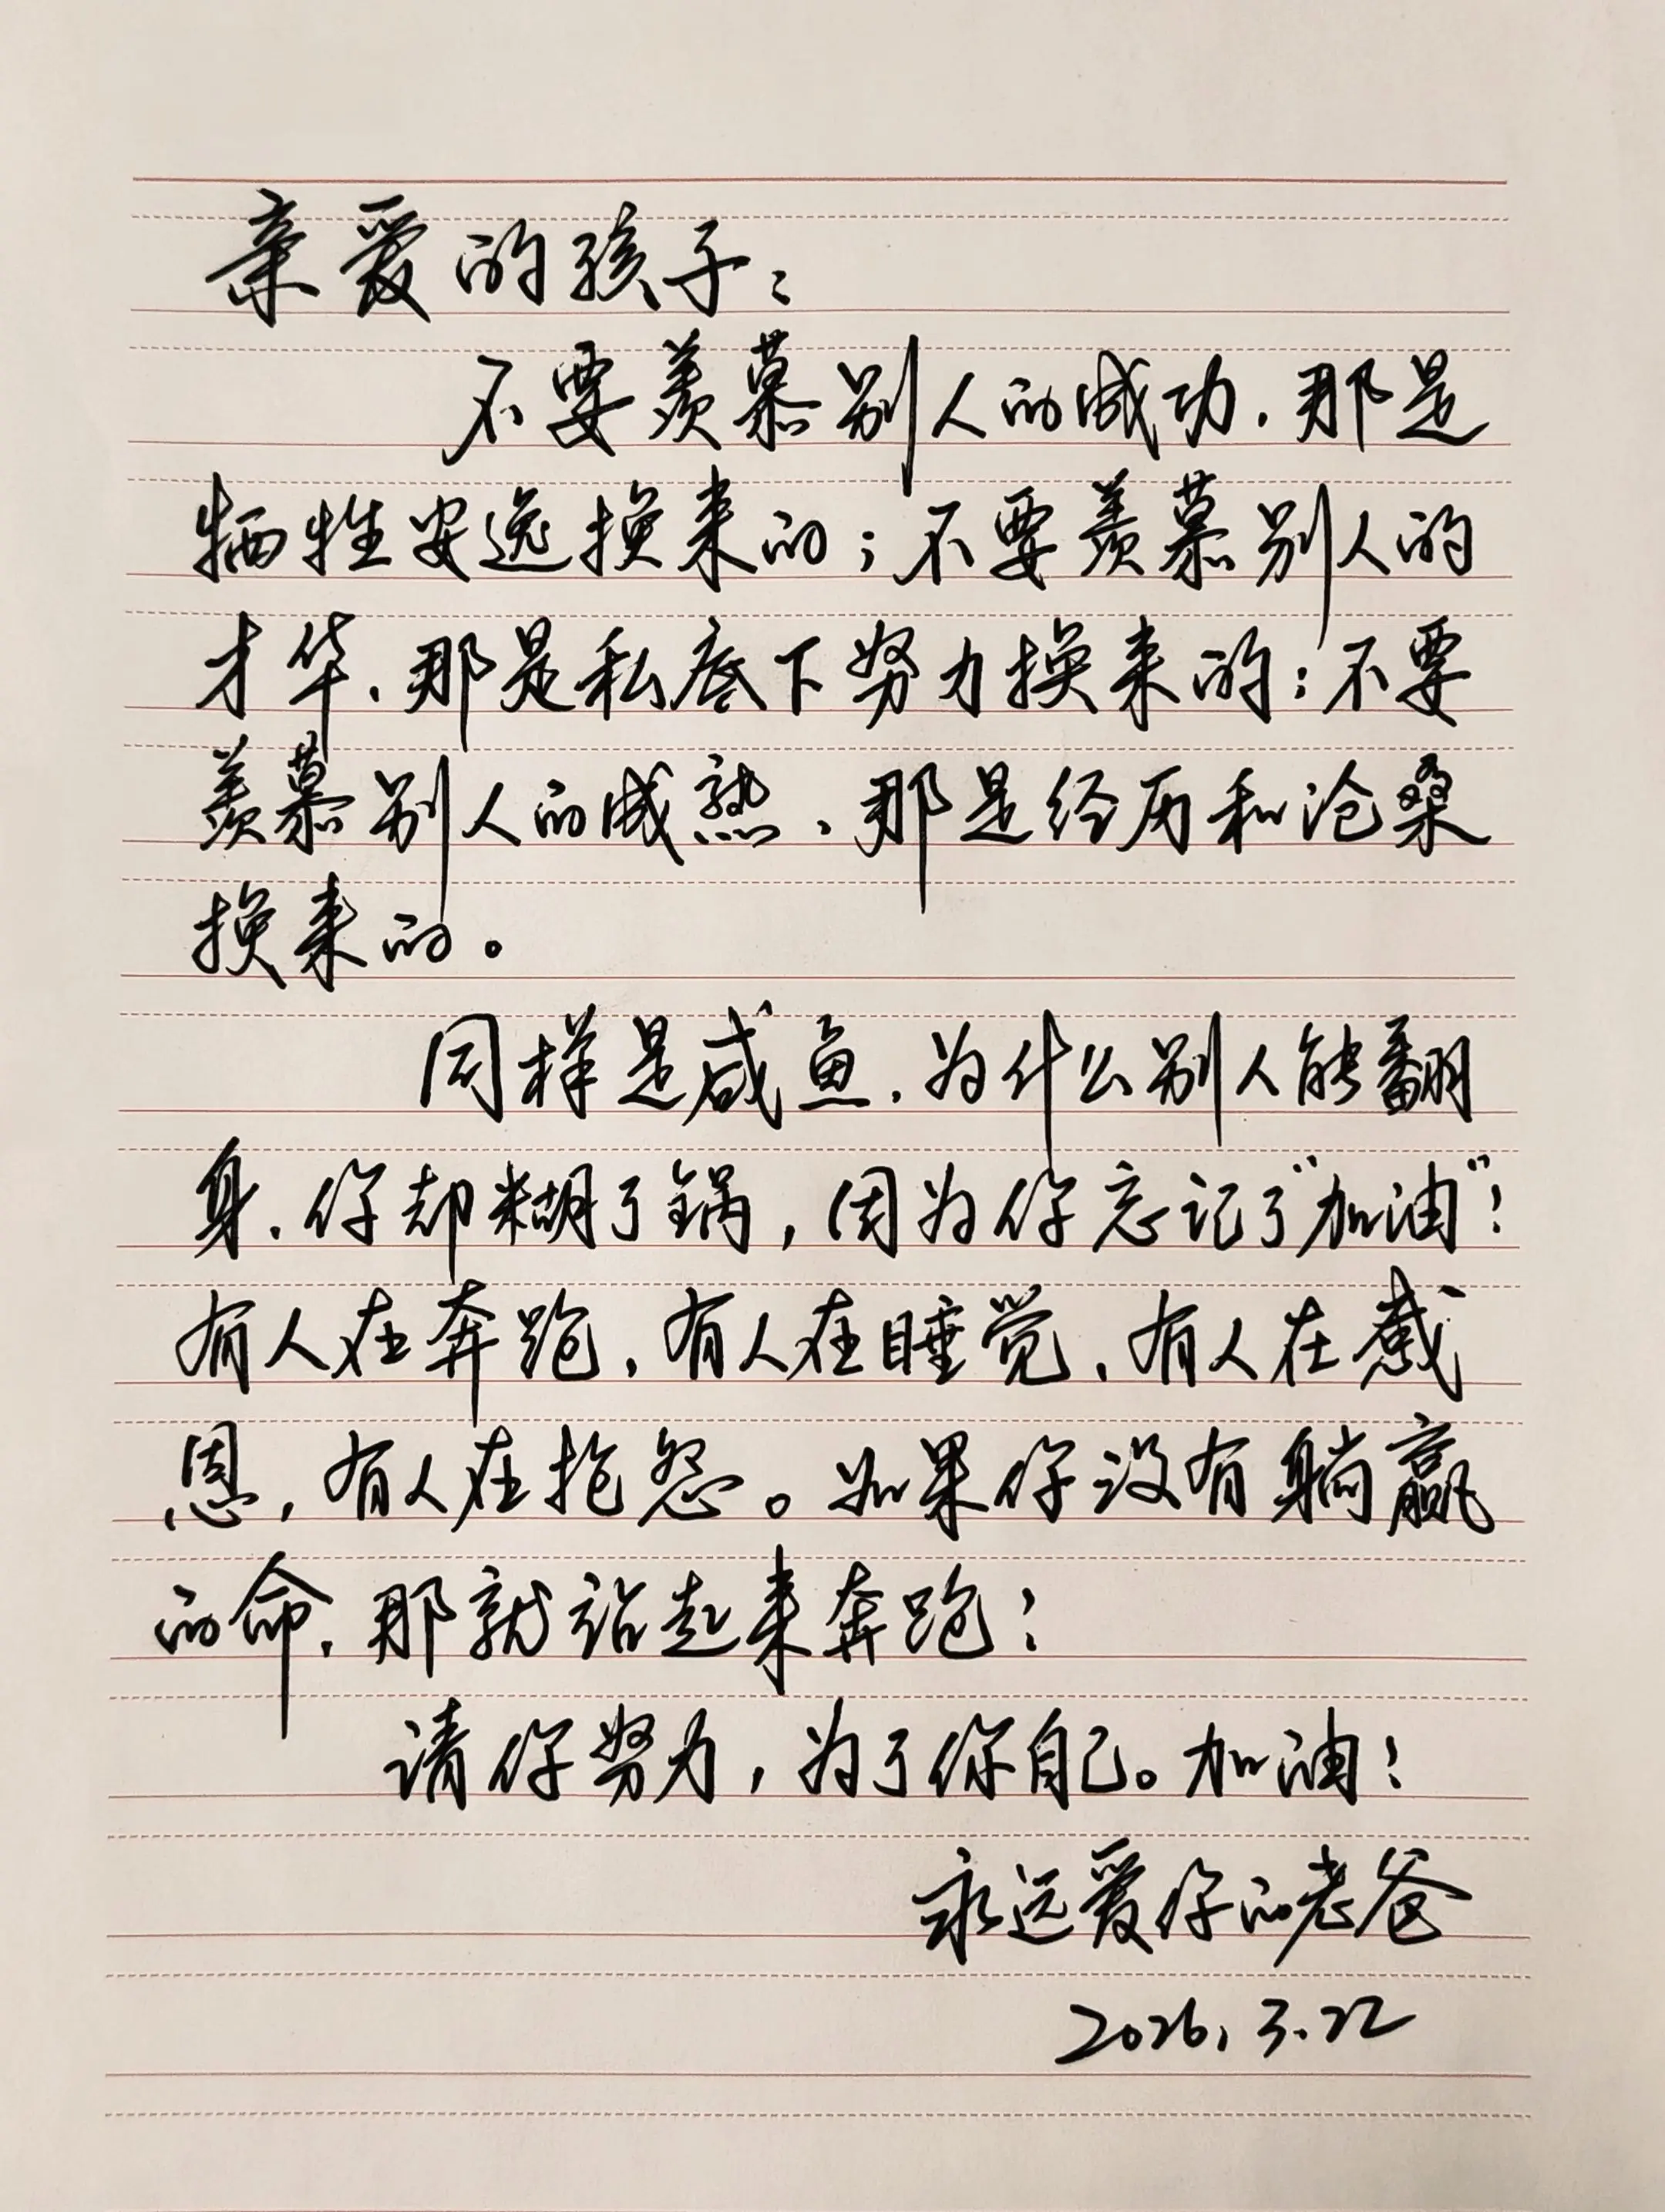 亲爱的孩子：
不要羡慕别人的成功，那是
牺牲安逸换来的；不要羡慕别人的
才华，那是私底下努力换来的；不要
羡慕别人的成熟，那是经历和沧桑
换来的。
同样是咸鱼，为什么别人能翻
身，你却糊了锅，因为你忘记了“加油”！
有人在奔跑，有人在睡觉，有人在感
恩，有人在抱怨。如果你没有躺赢
的命，那就站起来奔跑！
请你努力，为了你自己。加油！
永远爱你的老爸
2026.3.22